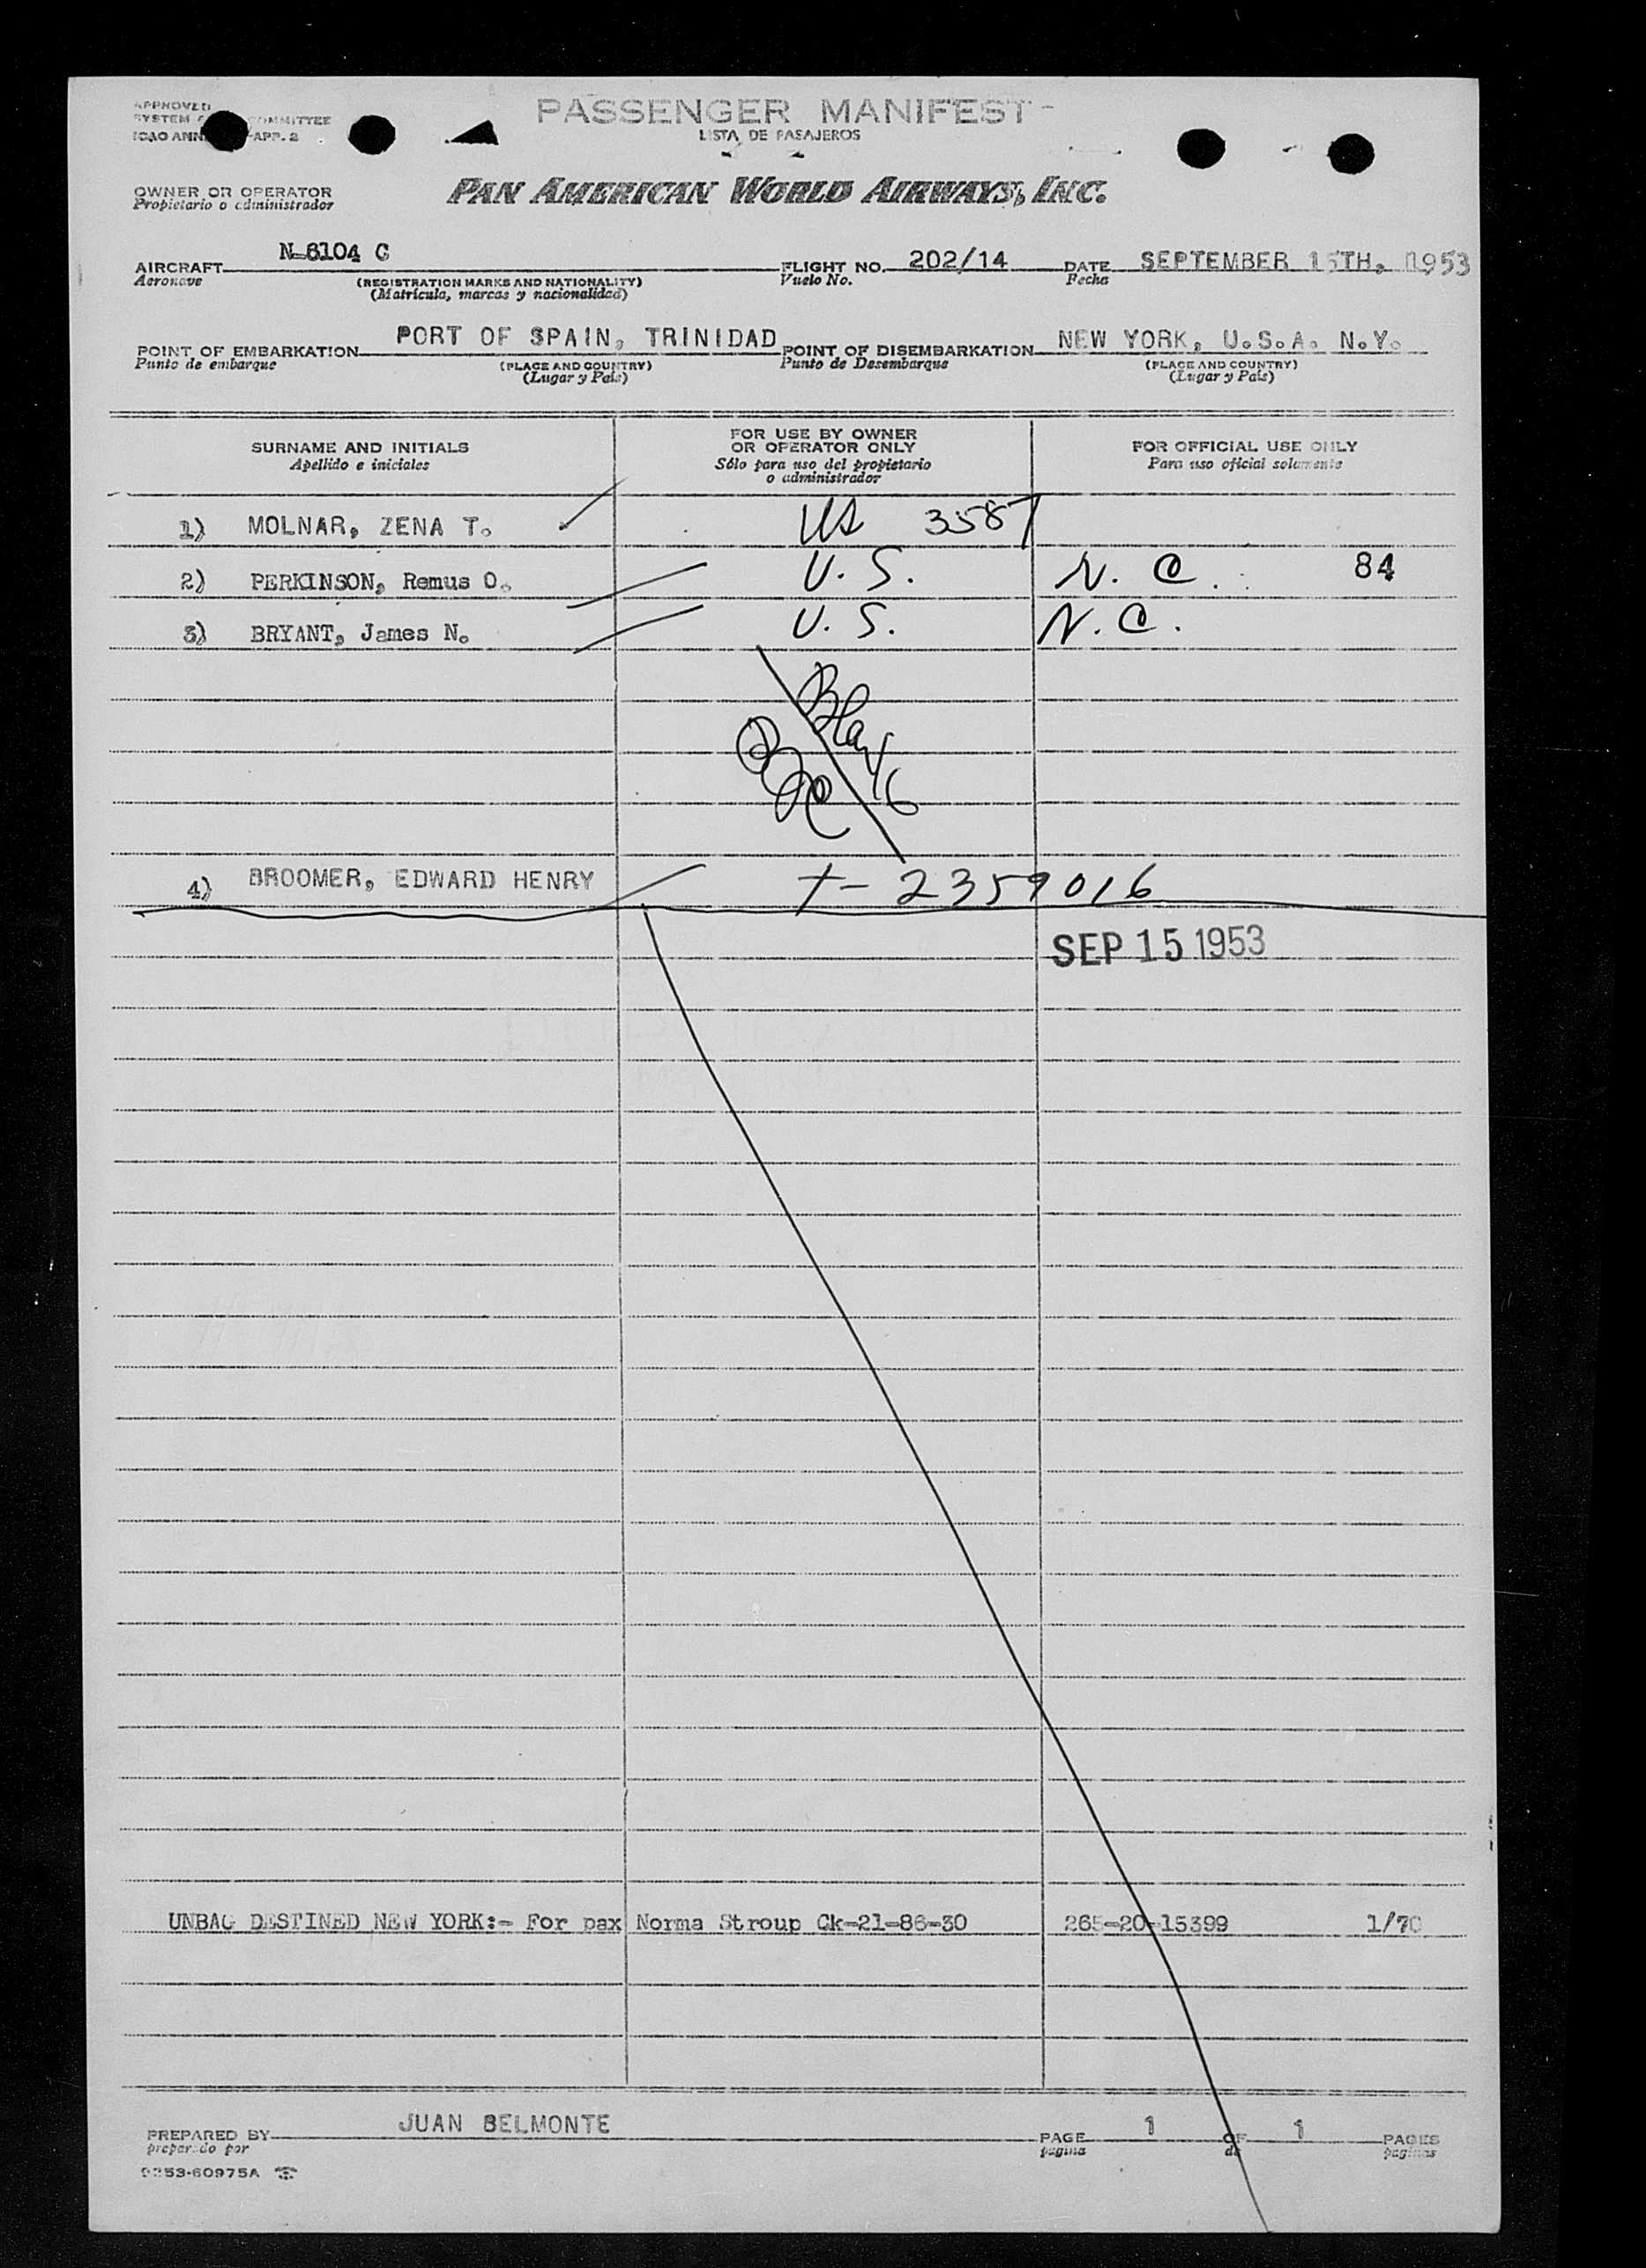 APPROVED
SYSTEM COMMITTEE
ICAO ANN APP. 2
PASSENGER MANIFEST
LISTA DE PASAJEROS
OWNER OR OPERATOR
Propietario o administrador
PAN AMERICAN WORLD AIRWAYS, INC.
AIRCRAFT N-6104 C FLIGHT NO. 202/14 DATE SEPTEMBER 15TH, 1953
Aeronave (REGISTRATION MARKS AND NATIONALITY) Vuelo No. Fecha
(Matrícula, marcas y nacionalidad)
POINT OF EMBARKATION PORT OF SPAIN, TRINIDAD POINT OF DISEMBARKATION NEW YORK, U.S.A. N.Y.
Punto de embarque (PLACE AND COUNTRY) Punto de Desembarque (PLACE AND COUNTRY)
(Lugar y País) (Lugar y País)
SURNAME AND INITIALS FOR USE BY OWNER OR OPERATOR ONLY FOR OFFICIAL USE ONLY
Apellido e iniciales Sólo para uso del propietario o administrador Para uso oficial solamente
1) MOLNAR, ZENA T. US 3587
2) PERKINSON, Remus O. U.S. N.C. 84
3) BRYANT, James N. U.S. N.C.
4) BROOMER, EDWARD HENRY T-2359016
SEP 15 1953
UNBAG DESTINED NEW YORK:- For pax Norma Stroup Ck-21-86-30 265-20-15399 1/70
PREPARED BY JUAN BELMONTE PAGE 1 OF 1 PAGES
preparado por pagina de paginas
60975A